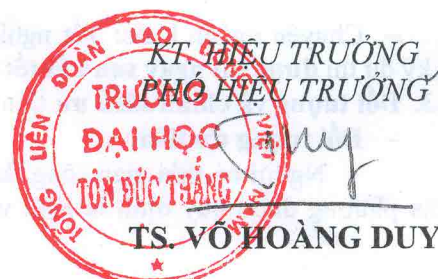 KT. HIỆU TRƯỞNG
PHÓ HIỆU TRƯỞNG
TỔNG LIÊN ĐOÀN LAO ĐỘNG VIỆT NAM
TRƯỜNG
ĐẠI HỌC
TÔN ĐỨC THẮNG
TS. VÕ HOÀNG DUY